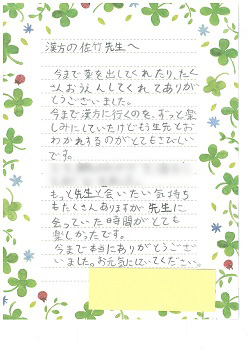 漢方の佐竹先生へ
今まで薬を出してくれたり、たく
さんおうえんしてくれてありが
とうございました。
今まで漢方に行くのを、ずっと楽
しみにしていたけどもう先生とお
わかれするのがとてもさびしい
です。
もっと先生と会いたい気持ち
もたくさんありますが先生に
会っていた時間がとても
楽しかったです。
今まで本当にありがとうござい
ました。お元気にしていてください。